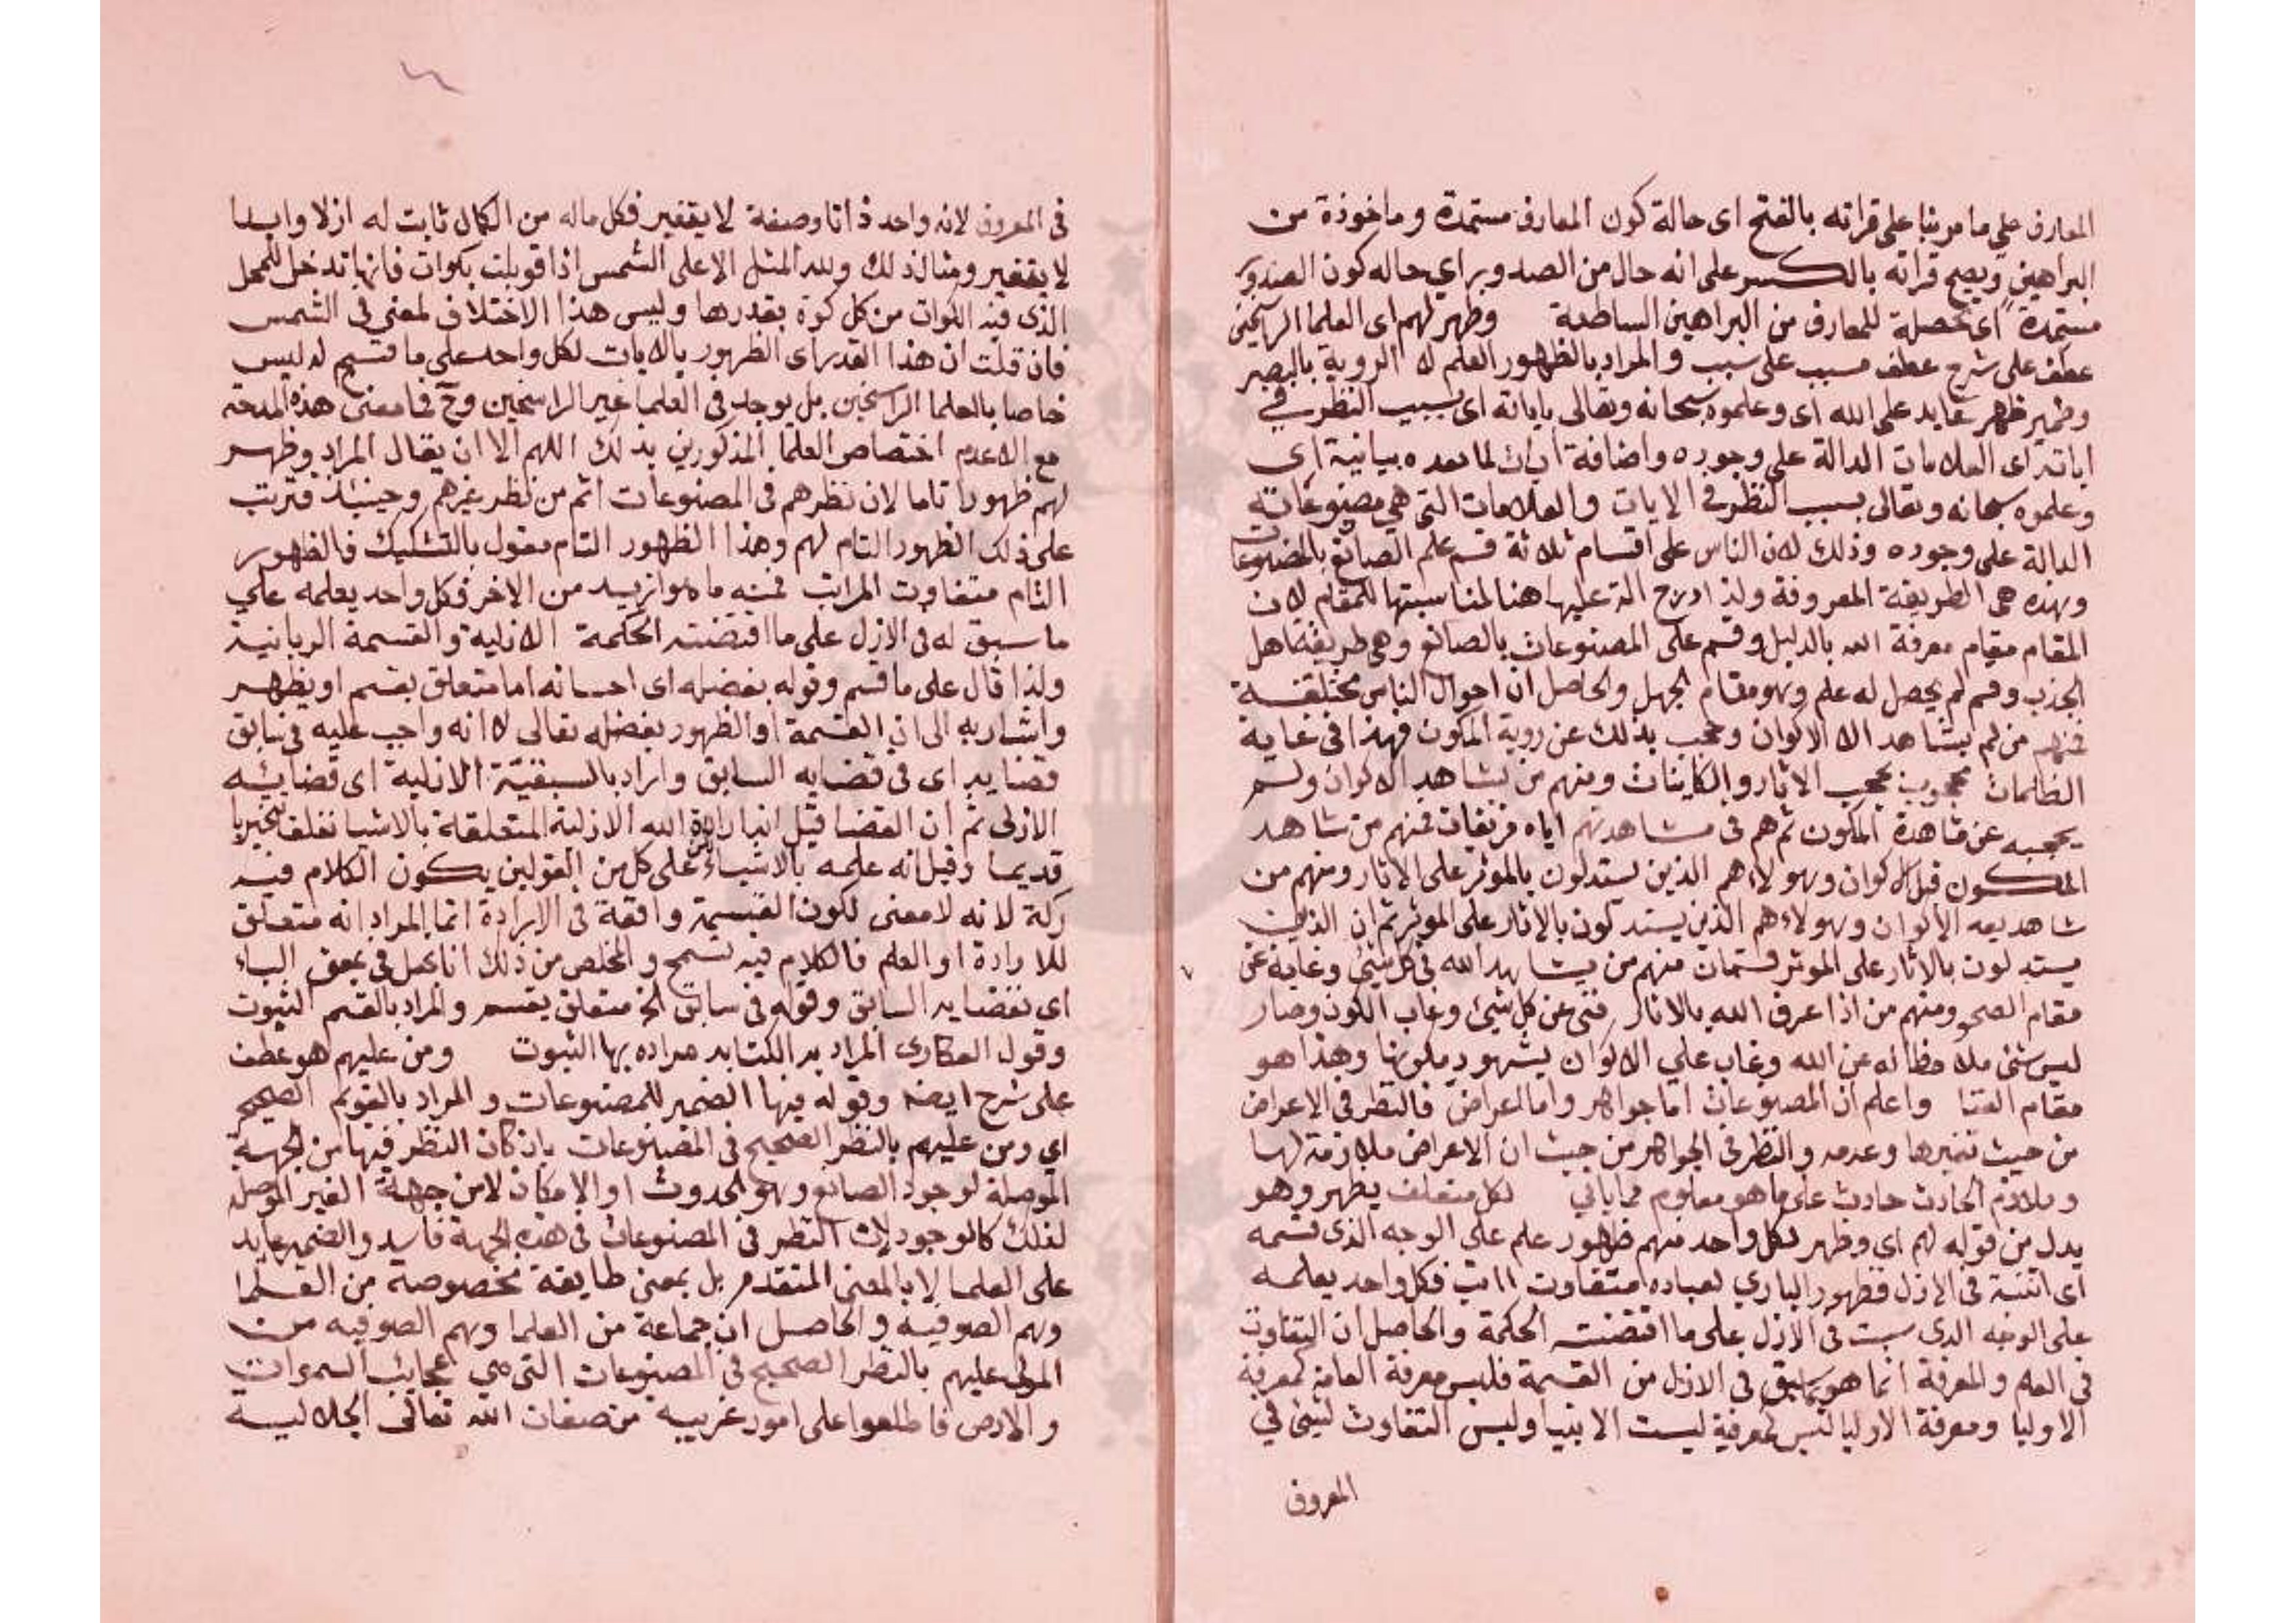 المعارف علي ما مر بنا على قراته بالفتح اى حالة كون المعارف مستمدة وماخوذة من
البراهين ويصح قراته بالكسر على انه حال من الصدور اي حاله كون الصدور
مستمدة اى محصلة للمعارف من البراهين الساطعة وظهر لهم اى العلما الراسخين
عطف على شرح عطف مسبب على سبب والمراد بالظهور العلم لا الروية بالبصر
وضمير ظهر عايد على الله اى وعلموه سبحانه وتعالى باياته اى بسبب النظر في
اياته اى العلامات الدالة على وجوده واضافة ايات لما بعده بيانية اى
وعلموه سبحانه وتعالى بسبب النظر في الايات والعلامات التى هي مصنوعاته
الدالة على وجوده وذلك لان الناس على اقسام ثلاثة قسم علم الصانع بالمصنوعات
وهذه هى الطريقة المعروفة ولذا درج عليها هنا لمناسبتها للمقام لان
المقام مقام معرفة الله بالدليل وقسم علم المصنوعات بالصانع وهى طريقة اهل
الجذب وقسم لم يحصل له علم وهو مقام الجهل والحاصل ان احوال الناس مختلفة
فمنهم من لم يشاهد الا الاكوان وحجب بذلك عن روية المكون فهذا فى غاية
الظلمات محجوب بحجب الاثار والكاينات ومنهم من يشاهد الاكوان ولم
يحجبه عن مشاهدة المكون ثم هم فى مشاهدتهم اياه فرقتان فمنهم من شاهد
المكون قبل الاكوان وهولاء هم الذين يستدلون بالموثر على الاثار ومنهم من
شاهد بعه الاكوان وهولاء هم الذين يستدلون بالاثار على الموثر ثم ان الذين
يستدلون بالاثار على الموثر قسمان منهم من يشاهد الله فى كل شئ وغاية عن
مقام الصحو ومنهم من اذا عرف الله بالاثار فنى عن كل شيئ وغاب الكون وصار
ليس شئ ملاحظا له عن الله وغاب علي الاكوان بشهود مكونها وهذا هو
مقام الفنا واعلم ان المصنوعات اما جواهر واما اعراض فالنظر فى الاعراض
من حيث تغيرها وعدمه والنظر فى الجواهر من حيث ان الاعراض ملازمة لها
وملازم الحادث حادث على ما هو معلوم مما ياتي لكل متعلق بظهر وهو
بدل من قوله لهم اى وظهر لكل واحد منهم ظهور علم على الوجه الذى قسمه
اى اثبته فى الازل فظهور الباري لعباده متفاوت فكل واحد يعلمه
على الوجه الذى سبق فى الازل على ما اقتضته الحكمة والحاصل ان التفاوت
فى العلم والمعرفة انما هو بما سبق فى الازل من القسمة فليس معرفة العامة كمعرفة
الاوليا ومعرفة الاوليا ليس كمعرفة الانبيا وليس التفاوت لشئ في
المعروف
فى المعروف لانه واحد ذاتا وصفة لا يتغير فكل ماله من الكمال ثابت له ازلا وابدا
لا يتغير ومثال ذلك ولله المثل الاعلى الشمس اذا قوبلت بكوات فانها تدخل للمحل
الذى فيه الكوات من كل كوة بقدرها وليس هذا الاختلاف لمعنى فى الشمس
فان قلت ان هذا القدر اى الظهور بالايات لكل واحد على ما قسم له ليس
خاصا بالعلما الراسخين بل يوجد فى العلما غير الراسخين وح فما معنى هذه المدحة
مع عدم اختصاص العلما المذكورين بذلك اللهم الا ان يقال المراد وظهر
لهم ظهورا تاما لان نظرهم فى المصنوعات اتم من نظر غيرهم وحينئذ فترتب
على ذلك الظهور التام لهم وهذا الظهور التام مقول بالتشكيك فالظهور
التام متفاوت المراتب فمنه ما هو ازيد من الاخر فكل واحد يعلمه علي
ما سبق له فى الازل على ما اقتضته الحكمة الازلية والقسمة الربانية
ولذا قال على ما قسم وقوله بفضله اى احسانه اما متعلق بقسم او بظهر
واشار به الى ان القسمة او الظهور بفضله تعالى لا انه واجب عليه فى سابق
قضايه اى فى قضايه السابق واراد بالسبقية الازلية اى قضايئه
الازلى ثم ان القضا قيل انه ارادة الله الازلية المتعلقة بالاشيا تعلقا تنجيزيا
قديما وقيل انه علمه بالاشياء على كل من القولين يكون الكلام فيه
ركة لانه لا معنى لكون القسمة واقعة فى الارادة انما المراد انه متعلق
للارادة او العلم فالكلام فيه تسمح والمخلص من ذلك انا نجعل فى بمعنى الباء
اى بقضايه السابق وقوله فى سابق الخ متعلق بقسم والمراد بالقسم الثبوت
وقول العكارى المراد به الكتابه مراده بها الثبوت ومن عليهم هو عطف
على شرح ايضه وقوله فيها الضمير للمصنوعات والمراد بالقويم الصحيح
اي ومن عليهم بالنظر الصحيح فى المصنوعات بان كان النظر فيها من الجهة
الموصلة لوجود الصانع وهو الحدوث او الامكان لا من جهة الغير الموصله
لذلك كالوجود لان النظر فى المصنوعات فى هذه الجهة فاسد والضمير عايد
على العلما لا بالمعنى المتقدم بل بمعنى طايفة مخصوصة من العلما
وهم الصوفية والحاصل ان جماعة من العلما وهم الصوفيه من
المولى عليهم بالنظر الصحيح فى المصنوعات التى هي عجايب السموات
والارض فاطلعوا على امور غريبه من صفات الله تعالى الجلالية